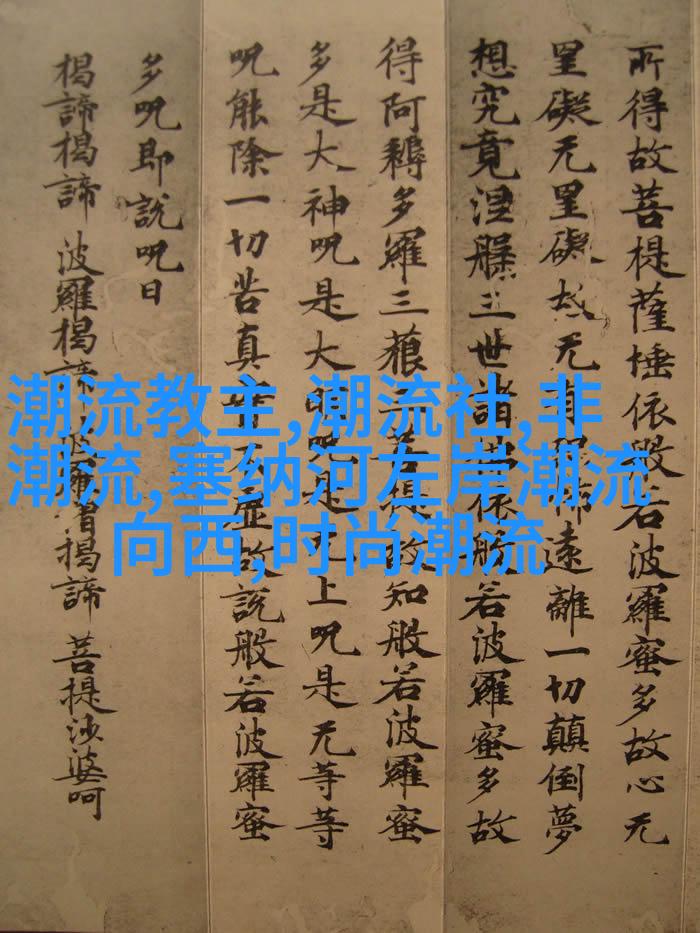 所得故菩提薩埵依般若波羅蜜多故心无
罣礙无罣礙故无有恐怖遠離一切顛倒夢
想究竟涅槃三世諸佛依般若波羅蜜多故
得阿耨多羅三藐三菩提故知般若波羅蜜
多是大神呪是大明呪是无上呪是无等等
呪能除一切苦真實不虛故說般若波羅蜜
多呪即說呪曰
揭諦揭諦 波羅揭諦 波羅僧揭諦 菩提沙婆呵
潮流教主,潮流社,非
潮流,塞纳河左岸潮流
向西,时尚潮流